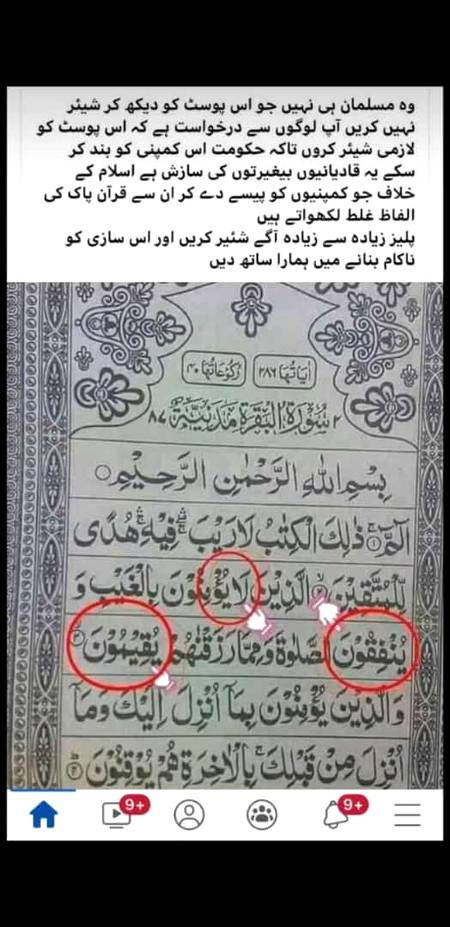 وہ مسلمان ہی نہیں جو اس پوسٹ کو دیکھ کر شیئر
نہیں کریں آپ لوگوں سے درخواست ہے کہ اس پوسٹ کو
لازمی شیئر کروں تاکہ حکومت اس کمپنی کو بند کر
سکے یہ قادیانیوں بیغیرتوں کی سازش ہے اسلام کے
خلاف جو کمپنیوں کو پیسے دے کر ان سے قرآن پاک کی
الفاظ غلط لکھواتے ہیں
پلیز زیادہ سے زیادہ آگے شئیر کریں اور اس سازی کو
ناکام بنانے میں ہمارا ساتھ دیں
اٰيَاتُهَا ٢٨٦ رُكُوْعَاتُهَا ٤٠
٢ سُوْرَةُ الْبَقَرَةِ مَدَنِيَّةٌ ٨٧
بِسْمِ اللّٰهِ الرَّحْمٰنِ الرَّحِيْمِ
الٓمّٓ ۝١ ذٰلِكَ الْكِتٰبُ لَا رَيْبَ ۛ فِيْهِ ۛ هُدًى
لِّلْمُتَّقِيْنَ ۝٢ الَّذِيْنَ لَا يُؤْمِنُوْنَ بِالْغَيْبِ وَ
يُنْفِقُوْنَ الصَّلٰوةَ وَمِمَّا رَزَقْنٰهُمْ يُقِيْمُوْنَ ۝٣
وَالَّذِيْنَ يُؤْمِنُوْنَ بِمَآ اُنْزِلَ اِلَيْكَ وَمَآ
اُنْزِلَ مِنْ قَبْلِكَ ۚ بِالْاٰخِرَةِ هُمْ يُوْقِنُوْنَ ۝٤
9+ 9+